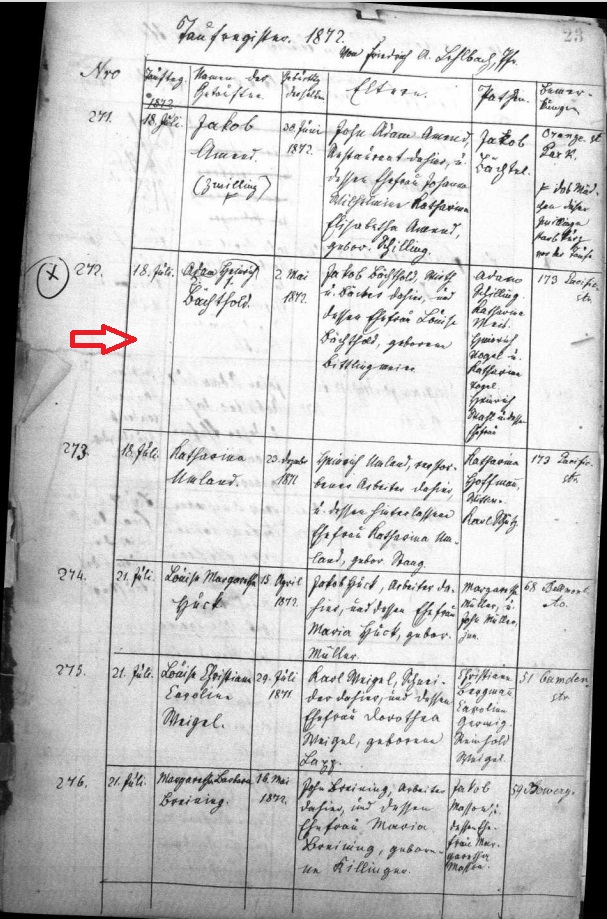 23
Taufregister. 1872.
von Friedrich A. Lehlbach, Pfr.
Nro
Tauftag. 1872
Namen der Getauften.
Geburtstag desselben
Eltern.
Pathen.
Bemerkungen
271.
18. Juli.
Jakob
Amend.
(Zwilling)
30. Juni
1872.
John Adam Amend,
Restaurant dahier, u.
dessen Ehefrau Johanna
Wilhelmine Katharina
Elisabetha Amend,
gebor. Schilling.
Jakob
Bächtel.
Orange
272.
18. Juli.
Adam Heinrich
Bächthold.
2. Mai
1872.
Jakob Bächthold, Wirth
u. Bäcker dahier, und
dessen Ehefrau Louise
Bächthold, geborene
Bittlingmeier
Adam
Schilling.
Katharina
Heinrich
Vogel u.
Katharina
Vogel.
Heinrich
Stahl u. dessen
Ehefrau
173 Pacific
str.
273.
18. Juli.
Katharina
Umland.
23. Dezembr
1871
Heinrich Umland, verstor-
bener Arbeiter dahier,
u. dessen hinterlassene
Ehefrau Katharina Um-
land, gebor. Stang.
Katharina
Hoffmann,
Karl Schütz
173 Pacific
str.
274.
21. Juli.
Louise Margaretha
Hück
13. April
1872.
Jakob Hück, Arbeiter da-
hier, und dessen Ehefrau
Maria Hück, gebor.
Müller.
Margaretha
Müller, u.
John Müller,
jun.
68
275.
21. Juli.
Louise Christiane
Caroline
Weigel.
29. Juli
1871.
Karl Weigel, Schnei-
der dahier, und dessen
Ehefrau Dorothea
Weigel, geborene
Lapp.
Christiane
Bergman
Carolina
Reinhold
Weigel.
51 Camden
str.
276.
21. Juli.
Margaretha Barbara
Breining.
16. Mai
1872.
John Breining, Arbeiter
dahier, und dessen
Ehefrau Maria
Breining, gebore-
ne Killinger.
Jakob
dessen Ehe-
frau Mar-
garetha
59 Bowery.